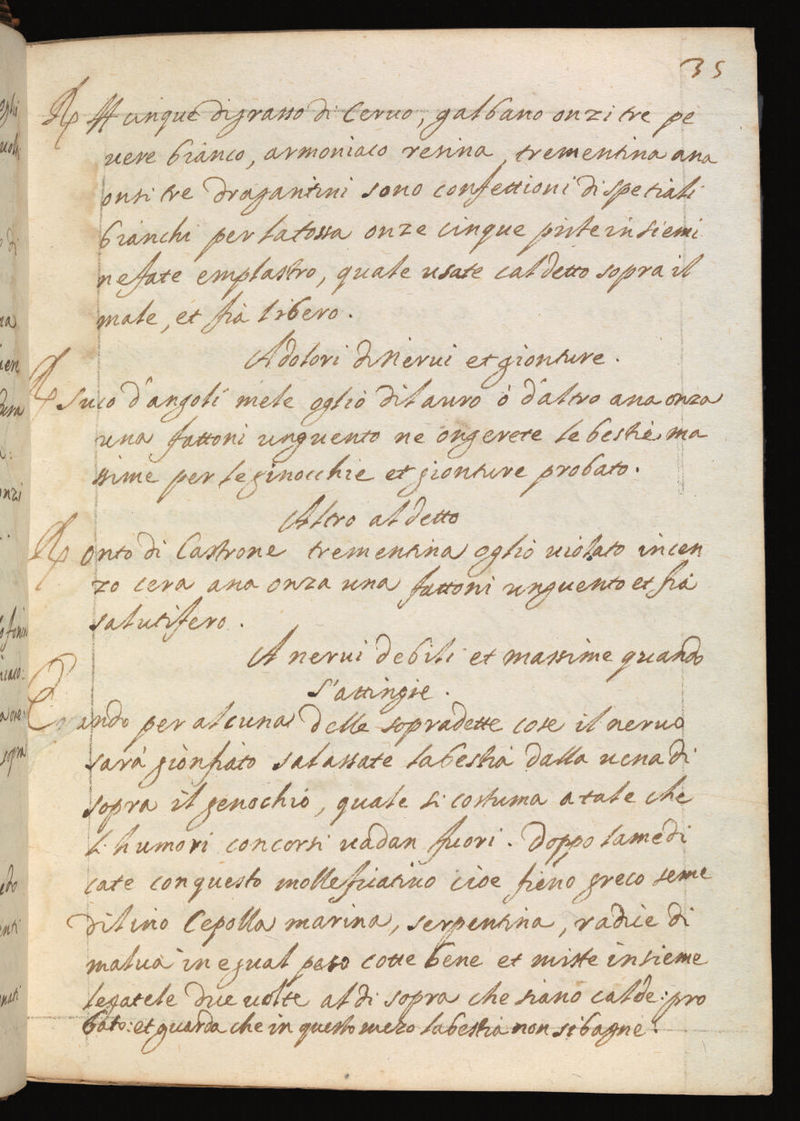 35
℞ ℔ cinque di grasso di Ceruo, galbano onzi tre pe
uere bianco, armoniaco resina, trementina ana
onsi tre dragantini sono confettioni di spetiali
bianchi per la tossa onze cinque piste insiemi
ne fate emplastro, quale usate caldetto sopra il
male, et fia libero.
A dolori di Nerui et gionture.
℞ Suco d'angoli mele oglio di lauro ò d'altro ana onza
una fattoni unguento ne ongerete le bestie ma
ssime per le ginocchie et gionture probato.
Altro al detto
℞ Onto di Castrone trementina oglio violato incen
zo cera ana onza una fattoni unguento et fia
salutifero.
A nerui debili et massime quando
s'attingie.
Quando per alcuna delle sopradette cose il neruo
sarà gionfiato salassate la bestia dalla uena di
sopra il genochio, quale si costuma a tale che
li humori concorsi uadan fuori. Doppo la medi
cate con questo mollificatiuo cioe fieno greco seme
di lino Cepolla marina, serpentina, radice di
malua in egual peso cotte bene et miste insieme
legatele due uolte al di sopra che siano calde: pro
bato: et guarda che in questo mezo la bestia non si bagne.